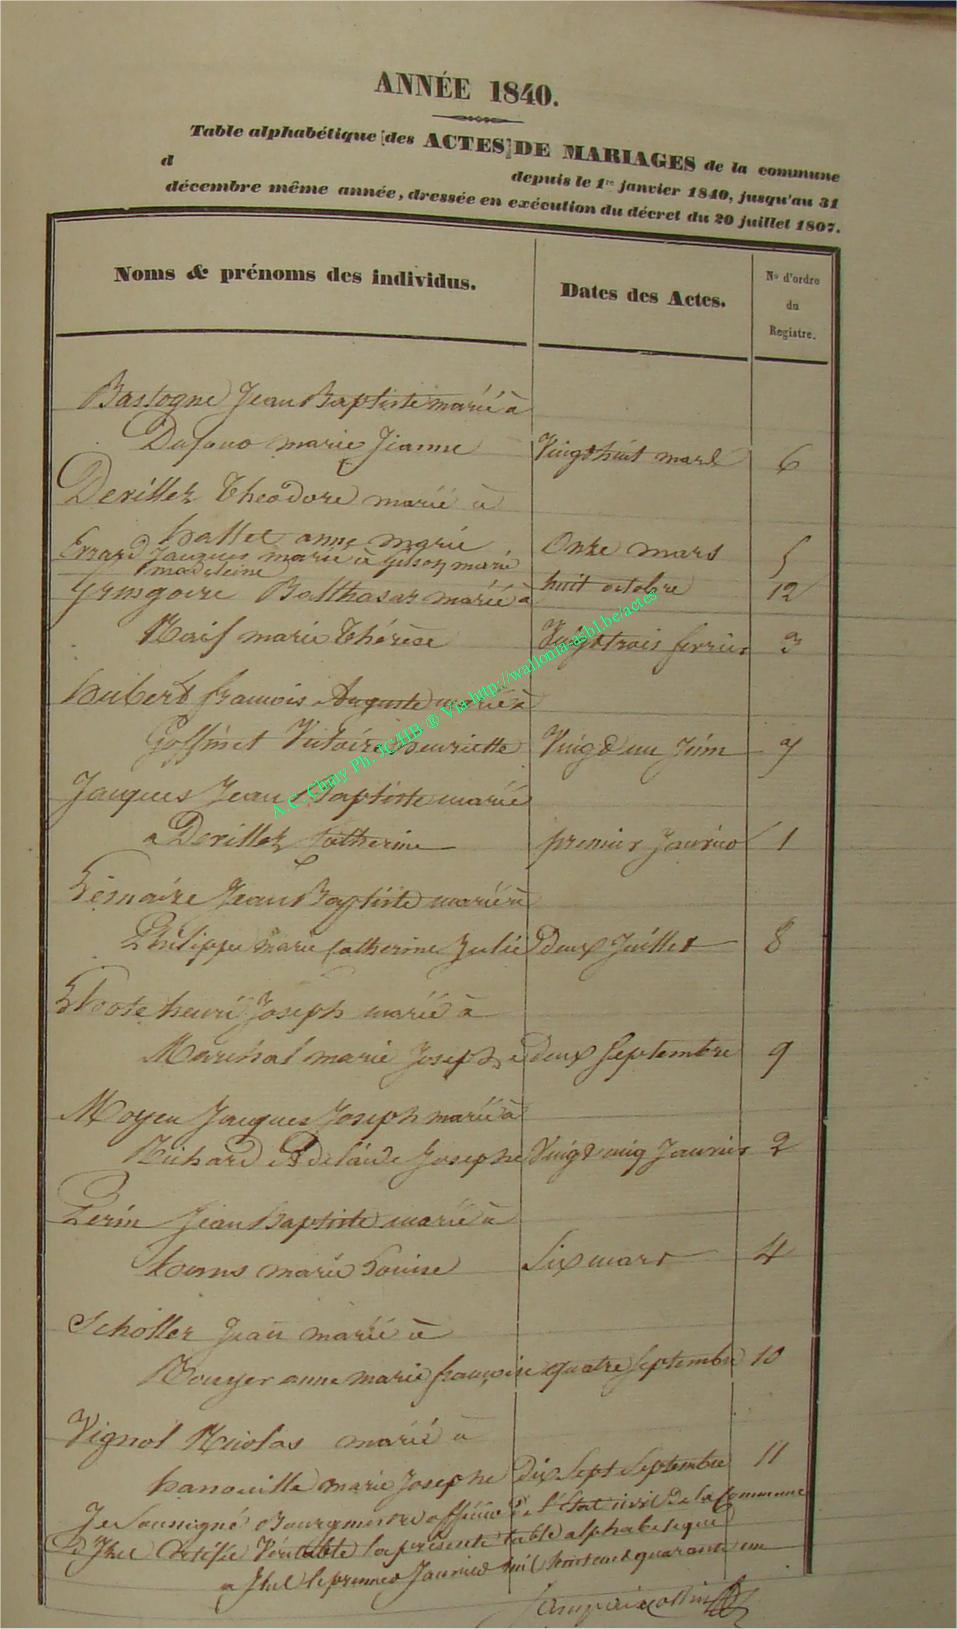 ANNÉE 1840.
Table alphabétique [des ACTES] DE MARIAGES de la commune
d depuis le 1er janvier 1840, jusqu'au 31
décembre même année, dressée en exécution du décret du 20 juillet 1807.
Noms & prénoms des individus. Dates des Actes. No d'ordre du Registre.
Bastogne Jean Baptiste marié à
marie Jeanne Vingt huit mars 6
Devillez Théodore marié à
hallet anne marie Onze mars 5
Evrard Jacques marié à Gilson marie
madeleine huit octobre 12
Grregoire Balthasar marié à
Naif marie Thérèse Vingt trois fevrier 3
hubert francois Auguste marié à
Goffinet Victoire henriette Vingt un Juin 7
Jacques Jean Baptiste marié
a Devillez Catherine premier Janvier 1
Lemaire Jean Baptiste marié à
Philippe marie Catherine Julie Deux Juillet 8
henri Joseph marié à
Marchal marie Josephe deux Septembre 9
Moyen Jacques Joseph marié à
Richard Adelaide Josephe Vingt cinq Janvier 2
Perin Jean Baptiste marié à
marie Louise Six mars 4
Scholler Jean marié à
Rouyer anne marie françoise quatre Septembre 10
Vignol Nicolas marié à
hanouille marie Josephe Dix Sept Septembre 11
Je Soussigné Bourgmestre officier de l'Etat civil De la Commune
D' Certifie Véritable la présente table alphabetique
a le premier Janvier mil huit cent quarante un
A.C. Chiny Ph. JCHB ® Via http://wallonia-asbl.be/actes